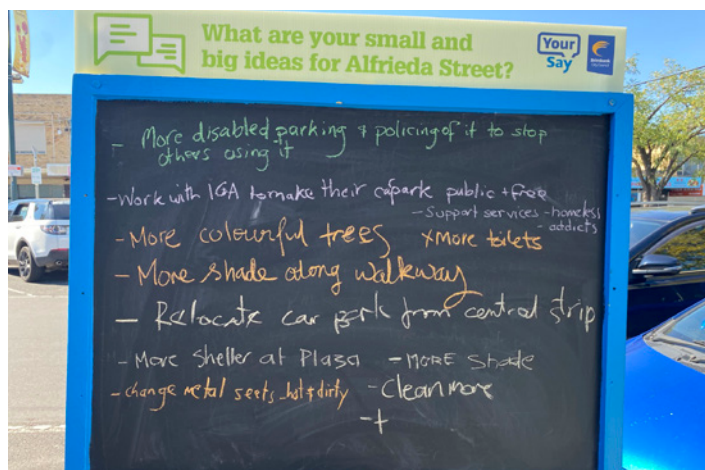 What are your small and
big ideas for Alfrieda Street?
Your
Say
- More disabled parking & policing of it to stop
others using it
- Work with IGA to make their carpark public + free
- Support services - homeless
- addicts
- More colourful trees x More toilets
- More shade along walkway
- Relocate car park from central strip
- More shelter at Plaza - MORE Shade
- change metal seets - hot & dirty - Clean more
- +